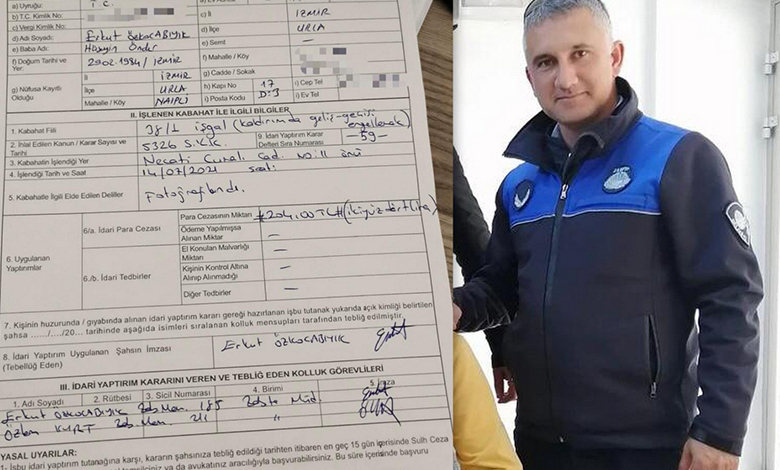 a) Uyruğu: T.C.
b) T.C. Kimlik No:
c) Vergi Kimlik No:
d) Adı Soyadı: Erkut Özkocabıyık
e) Baba Adı: Hüseyin Önder
f) Doğum Tarihi ve Yeri: 29.02.1984 / İZMİR
g) Nüfusa Kayıtlı Olduğu
İl İZMİR
İlçe URLA
Mahalle / Köy NAİPLİ
c) İl İZMİR
d) İlçe URLA
e) Semt —
f) Mahalle / Köy
g) Cadde / Sokak
h) Kapı No 17 D:3
ı) Posta Kodu
i) Cep Tel
i) Ev Tel
II. İŞLENEN KABAHAT İLE İLGİLİ BİLGİLER
1. Kabahat Fiili 38/1 işgal (kaldırımda geliş-geçişi engellemek)
2. İhlal Edilen Kanun / Karar Sayısı ve Tarihi 5326 S.K.K.
9. İdari Yaptırım Karar Defteri Sıra Numarası -59-
3. Kabahatin İşlendiği Yer Necati Cumalı Cad. No:11 önü
4. İşlendiği Tarih ve Saat 14/07/2021 saat:
5. Kabahatle İlgili Elde Edilen Deliller Fotoğraflandı.
6. Uygulanan Yaptırımlar
6./a. İdari Para Cezası
Para Cezasının Miktarı #204,00TL# (ikiyüzdörtlira)
Ödeme Yapılmışsa Alınan Miktar —
6./b. İdari Tedbirler
El Konulan Malvarlığı Miktarı —
Kişinin Kontrol Altına Alınıp Alınmadığı —
Diğer Tedbirler —
7. Kişinin huzurunda / gıyabında alınan idari yaptırım kararı gereği hazırlanan işbu tutanak yukarıda açık kimliği belirtilen
şahsa ...../...../20... tarihinde aşağıda isimleri sıralanan kolluk mensupları tarafından tebliğ edilmiştir.
8. İdari Yaptırım Uygulanan Şahsın İmzası (Tebellüğ Eden) Erkut ÖZKOCABIYIK
III. İDARİ YAPTIRIM KARARINI VEREN VE TEBLİĞ EDEN KOLLUK GÖREVLİLERİ
1. Adı Soyadı 2. Rütbesi 3. Sicil Numarası 4. Birimi
Erkut ÖZKOCABIYIK Zab.Mem. 185 Zabıta Müd.
Özkan KURT Zab.Mem. 211 "
YASAL UYARILAR:
1- İşbu idari yaptırım tutanağına karşı, kararın şahsınıza tebliğ edildiği tarihten itibaren en geç 15 gün içerisinde Sulh Ceza
ve ya da avukatınız aracılığıyla başvurabilirsiniz. Bu süre içerisinde başvuru